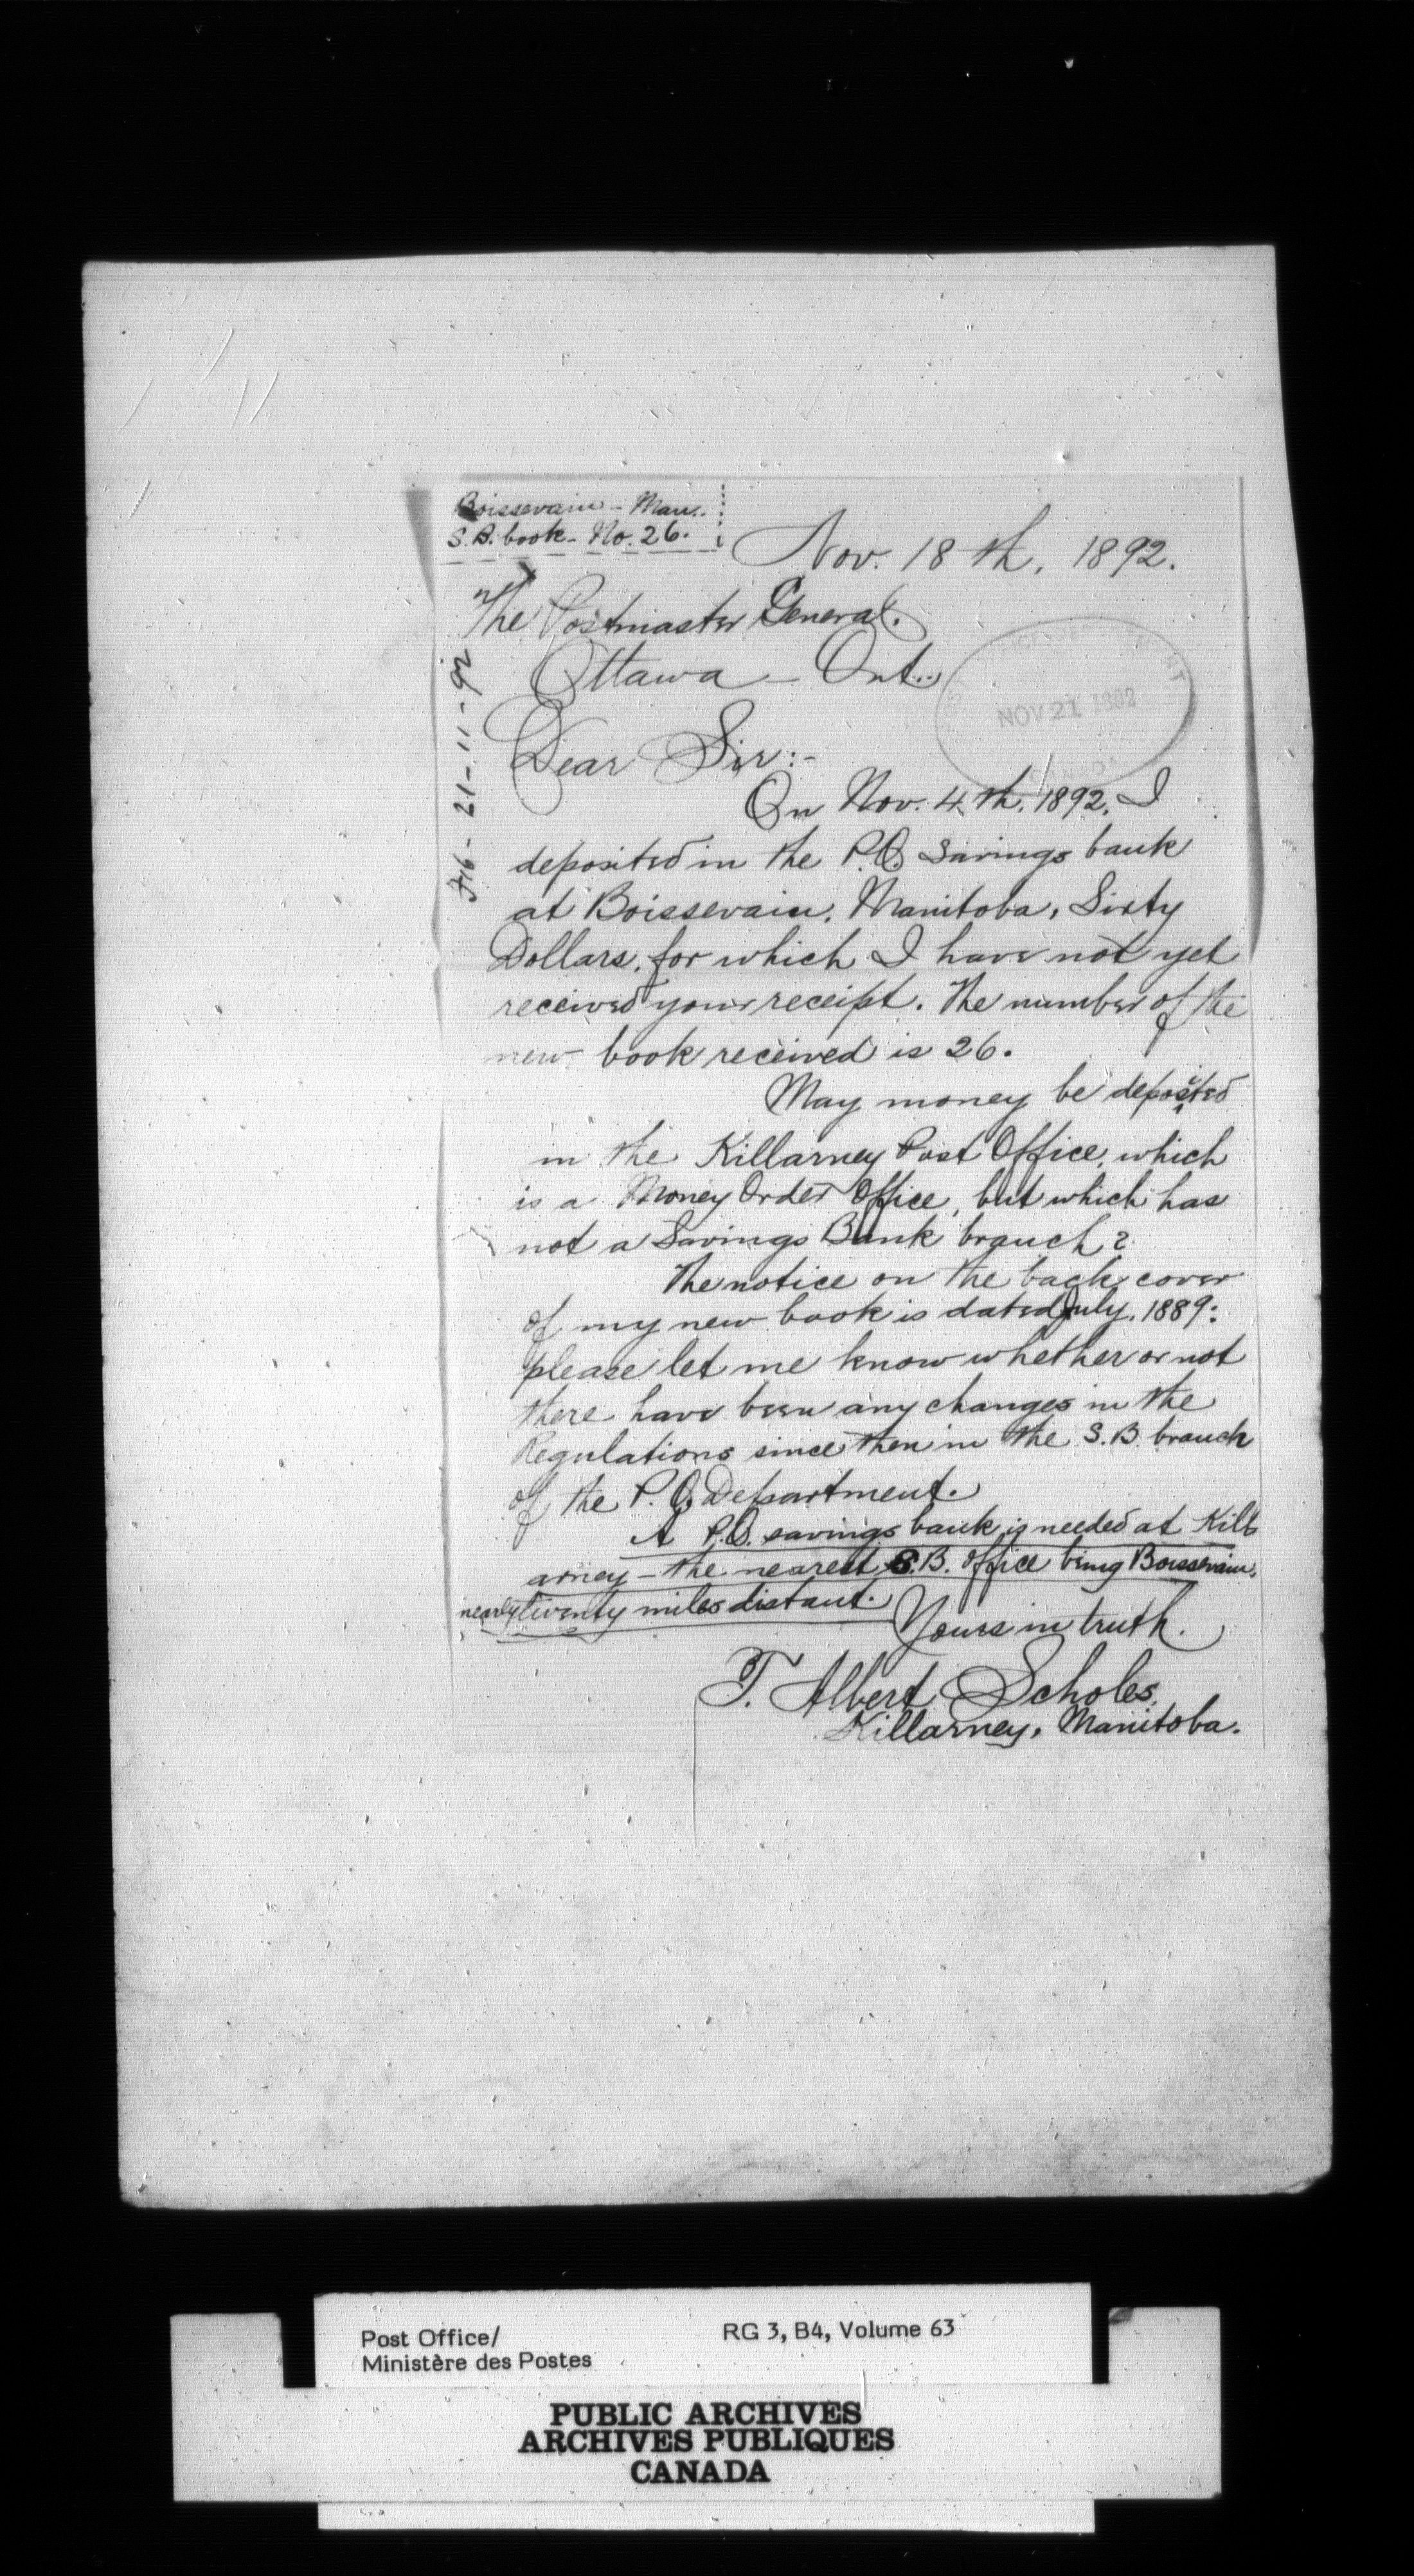 Boissevain - Man.
S.B. book - No. 26.
Nov. 18 th, 1892.
The Postmaster General.
Ottawa - Ont.
NOV 21 1892
21-11-92
Dear Sir:-
On Nov. 4.th, 1892, I
deposited in the P.O. Savings bank
at Boissevain, Manitoba, Sixty
Dollars, for which I have not yet
received your receipt. The number of the
new book received is 26.
May money be deposited
in the Killarney Post Office, which
is a Money Order Office, but which has
not a Savings Bank branch?
The notice on the back cover
of my new book is dated July, 1889:
please let me know whether or not
there have been any changes in the
Regulations since then in the S.B. branch
of the P.O. Department.
A P.O. savings bank is needed at Kill
arney - the nearest S.B. office being Boissevain,
nearly twenty miles distant.
Yours in truth.
T. Albert Scholes,
Killarney, Manitoba.
Post Office/
Ministère des Postes
RG 3, B4, Volume 63
PUBLIC ARCHIVES
ARCHIVES PUBLIQUES
CANADA